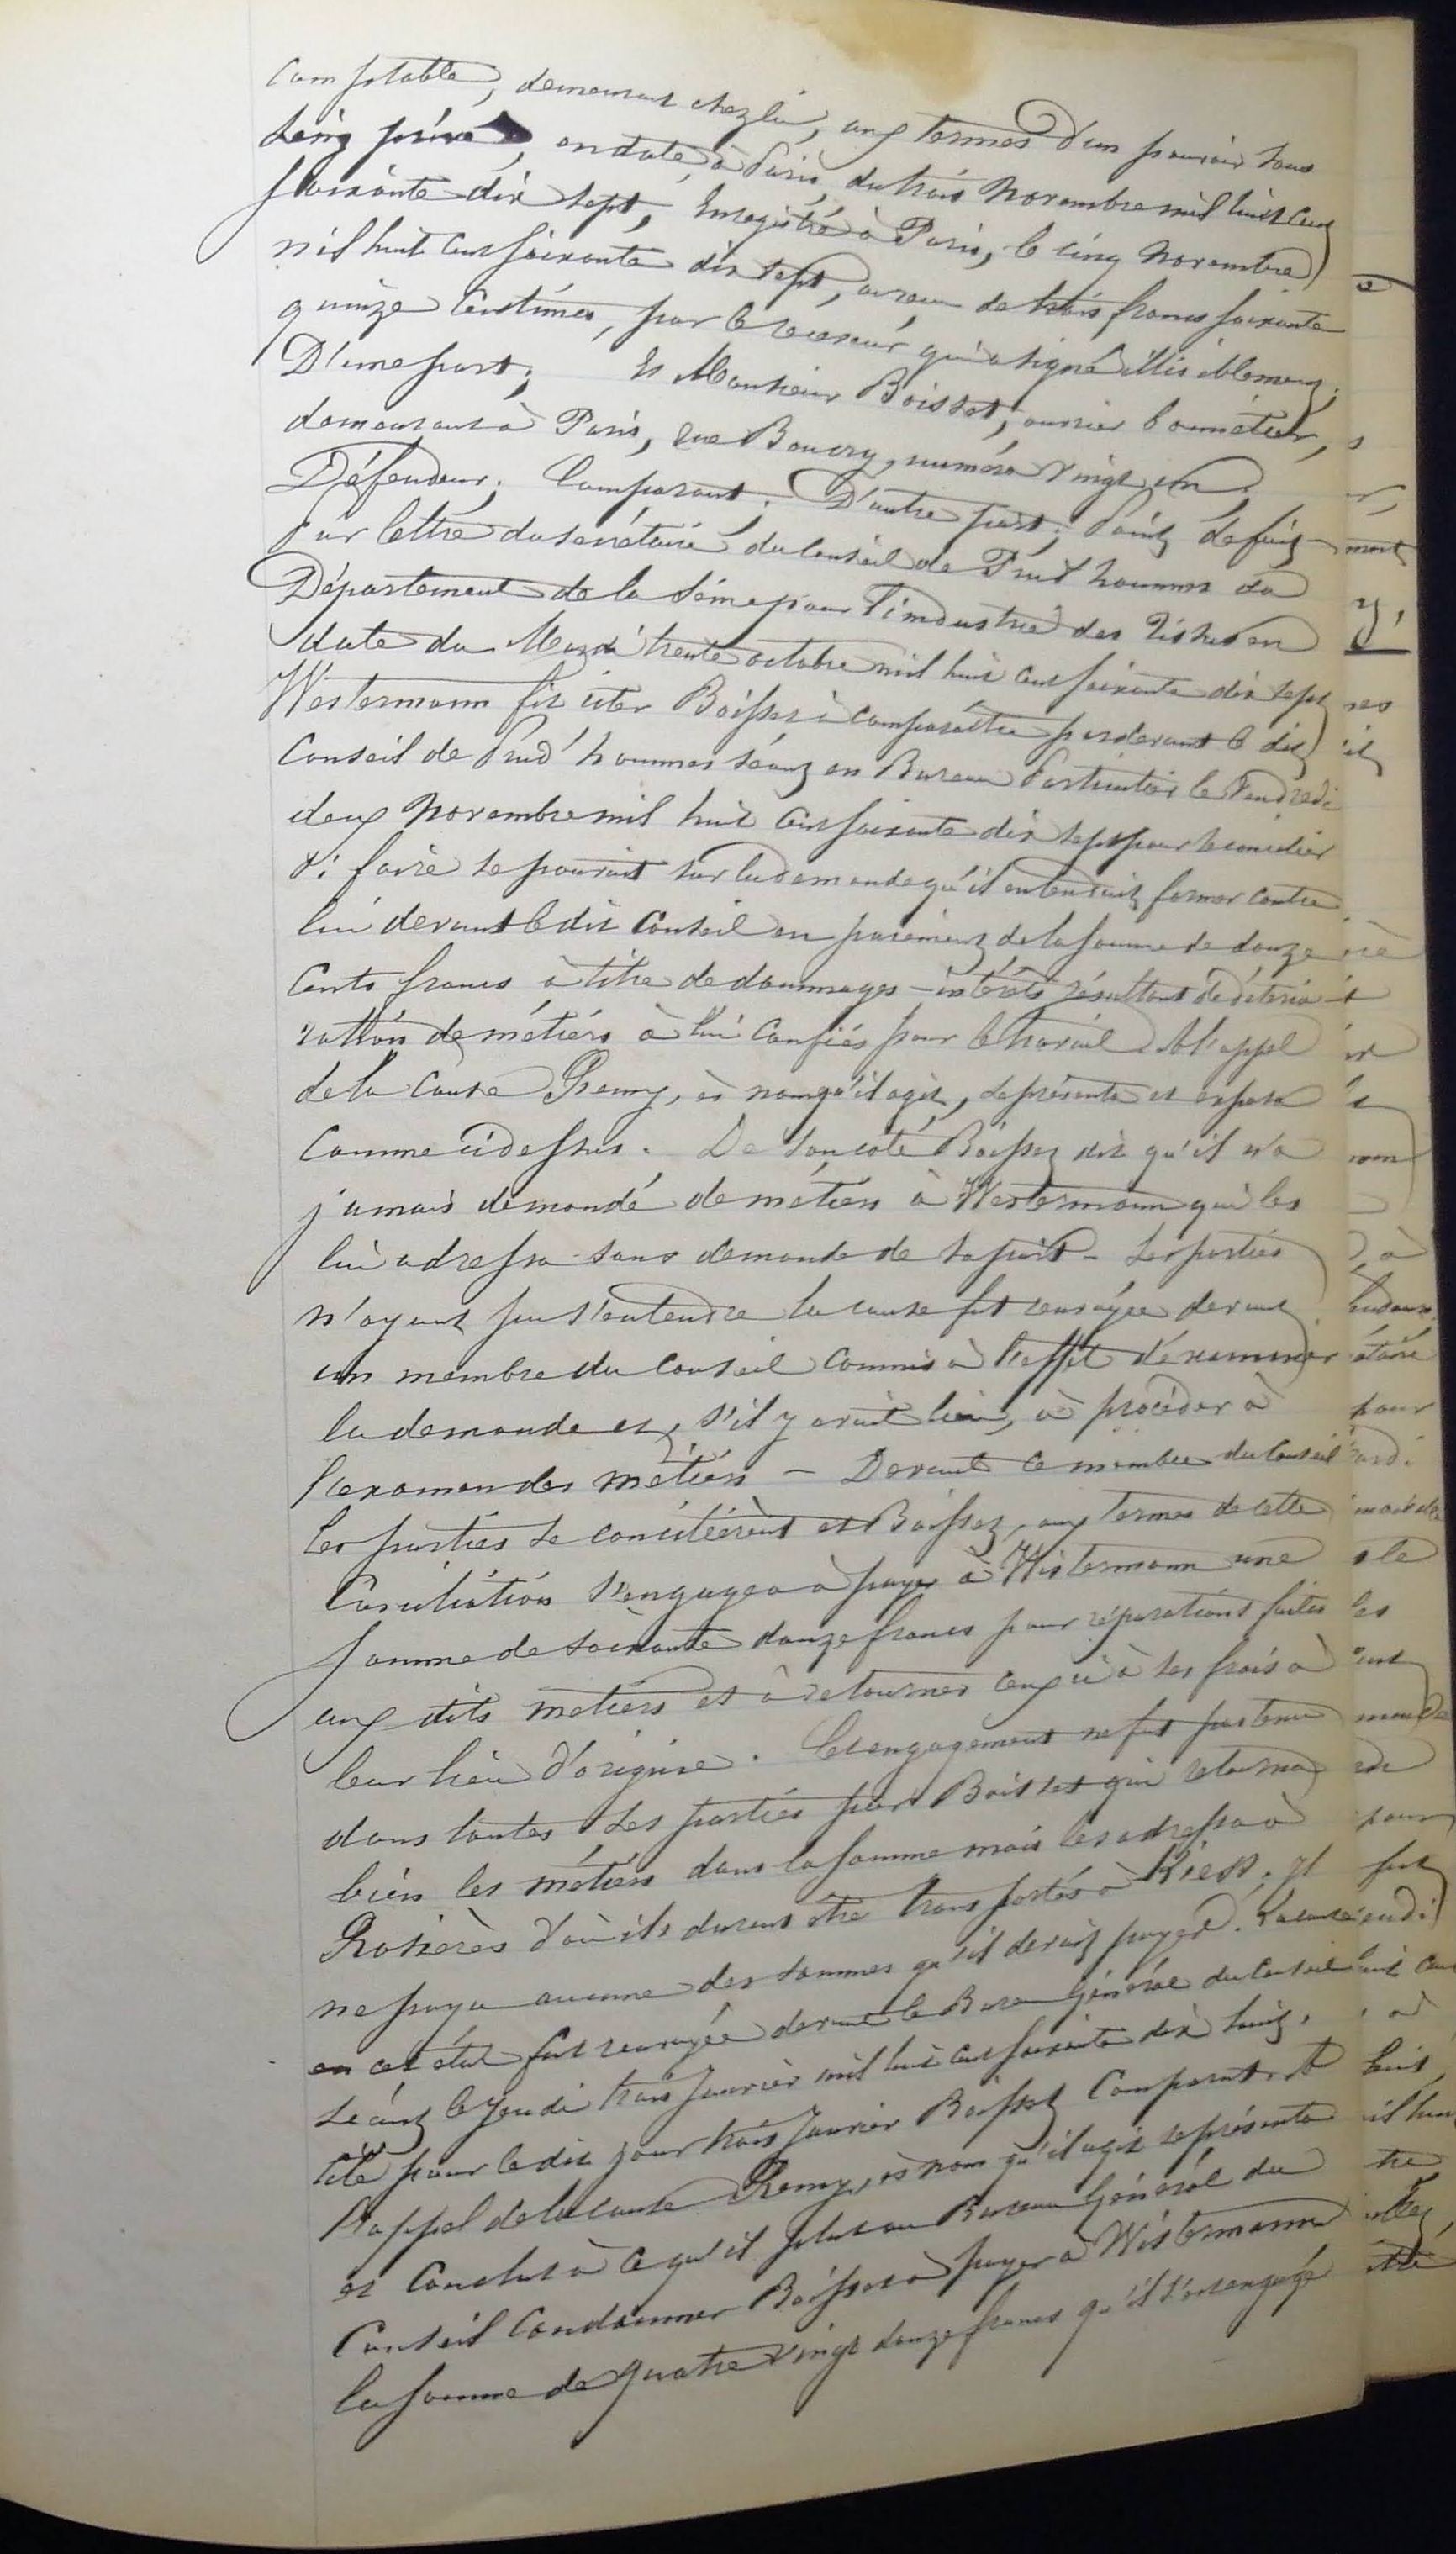 Comptable, demeurant chez lui, aux termes d'un pouvoir sous
seing privé, en date, à Paris, du trois Novembre mil huit cent
soixante dix sept, Enregistré à Paris, le cinq Novembre
mil huit cent soixante dix sept, au reçu de trois francs soixante
quinze centimes, par le receveur qui a signé illisiblement;
D'une part; Et Monsieur Boisset, ouvrier bonnetier,
demeurant à Paris, rue Boucry, numéro vingt un
Défendeur; Comparant; D'autre part; Point de fait -
Par lettre du secrétaire du Conseil de Prud'hommes du
Département de la Seine pour l'industrie des Tissus en
date du Mardi trente octobre mil huit cent soixante dix sept
Westermann fit citer Boisset à comparaître pardevant le dit
Conseil de Prud'hommes séant en Bureau Particulier le Vendredi
deux Novembre mil huit cent soixante dix sept pour se concilier
si faire se pouvait sur la demande qu'il entendait former contre
lui devant le dit Conseil en paiement de la somme de douze
cents francs à titre de dommages-intérêts résultant de détério-
ration de métiers à lui confiés pour le travail. A l'appel
de la cause Remy, ès nom qu'il agit, se présenta et exposa
comme ci dessus. De son coté Boisset dit qu'il n'a
jamais demandé de métiers à Westermann qui les
lui adressa sans demande de sa part - Les parties
n'ayant pu s'entendre la cause fut renvoyée devant
un membre du Conseil commis à l'effet d'examiner
la demande et, s'il y avait lieu, à procéder à
l'examen des métiers - Devant ce membre du Conseil
les parties se concilièrent et Boisset, aux termes de cette
Conciliation s'engagea à payer à Westermann une
somme de soixante douze francs pour réparations faites
aux dits métiers et à retourner ceux ci à ses frais à
leur lieu d'origine. Cet engagement ne fut pas tenu
dans toutes ses parties par Boisset qui retourna
bien les métiers dans la Somme mais les adressa à
Rosières d'où ils durent être transportés à . Il
ne paya aucune des sommes qu'il devait payer. La cause
en cet état fut renvoyée devant le Bureau Général du Conseil
séant le Jeudi trois Janvier mil huit cent soixante dix huit.
Cité pour le dit jour trois Janvier Boisset Comparut. A
l'appel de la cause Remy, ès nom qu'il agit se présenta
et conclut à ce qu'il plut au Bureau Général du
Conseil Condamner Boisset à payer à Westermann
la somme de quatre vingt douze francs qu'il s'est engagé